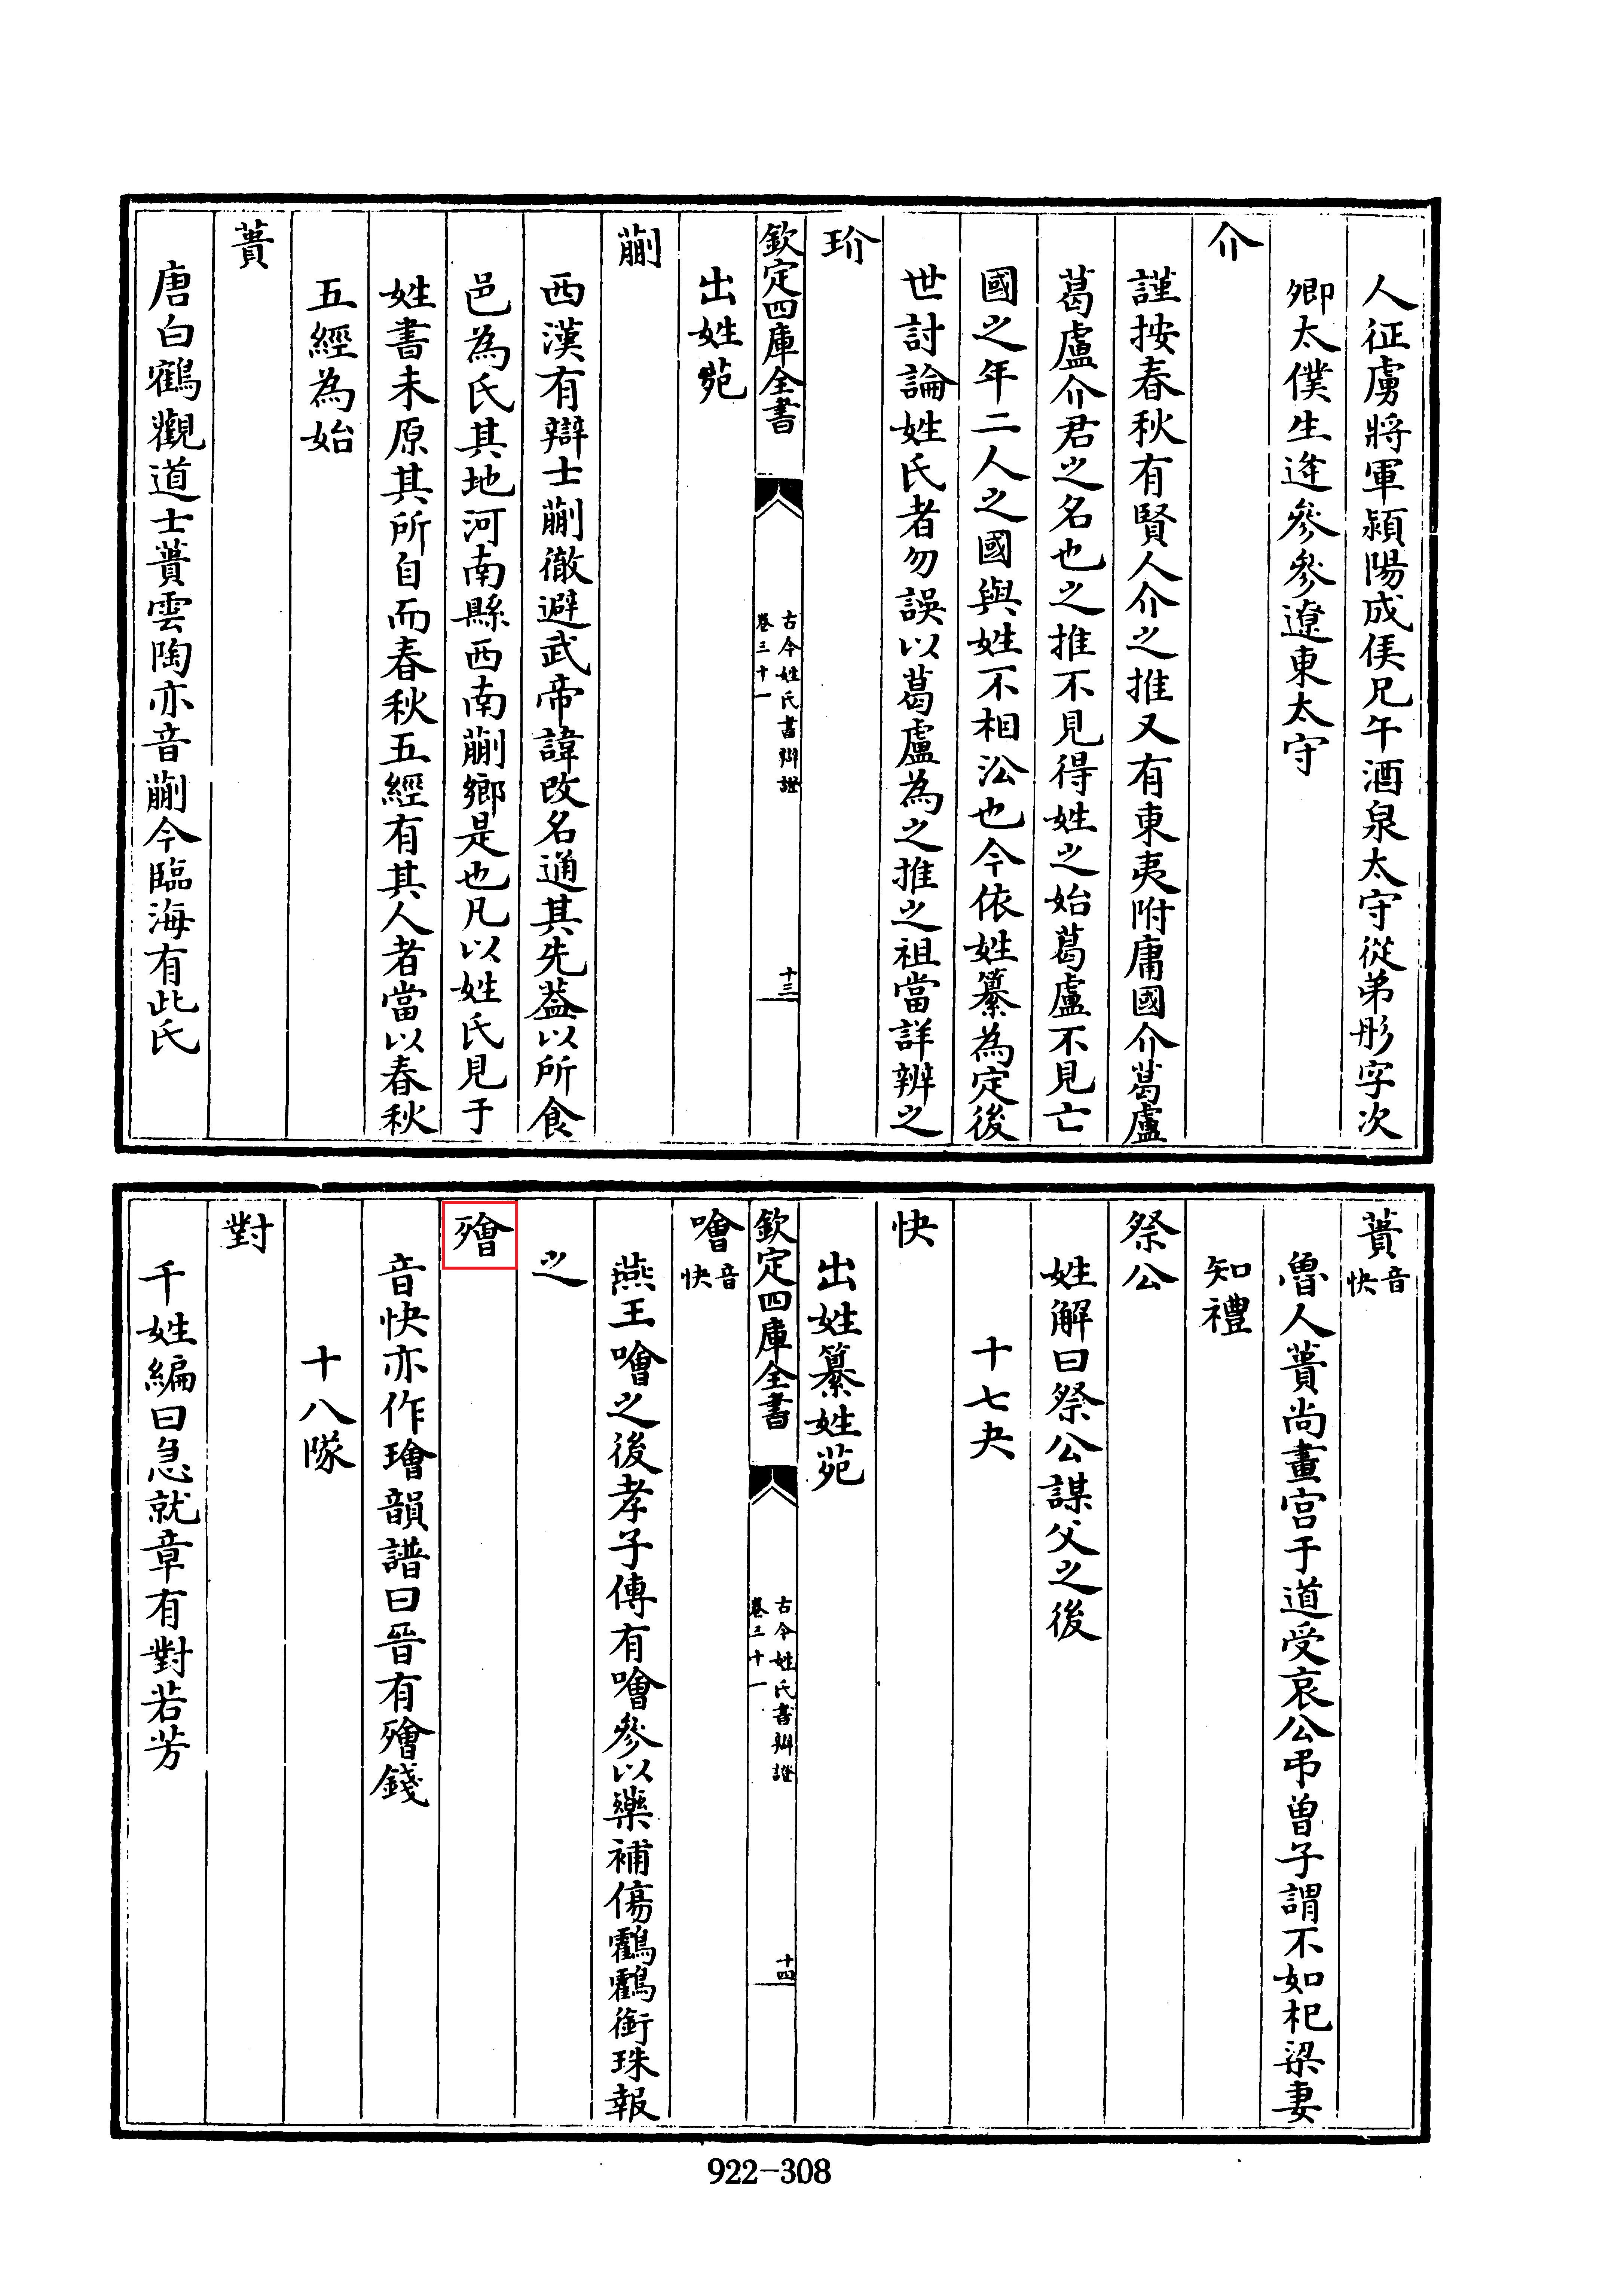 人征虜將軍潁陽成侯兄午酒泉太守從弟彤字次
卿太僕生逄參參遼東太守
介
謹按春秋有賢人介之推又有東夷附庸國介葛盧
葛盧介君之名也之推不見得姓之始葛盧不見亡
國之年二人之國與姓不相㳂也今依姓纂為定後
世討論姓氏者勿誤以葛盧為之推之祖當詳辨之
玠
欽定四庫全書
古今姓氏書辯證
卷三十一
十三
出姓苑
蒯
西漢有辯士蒯徹避武帝諱改名通其先葢以所食
邑為氏其地河南縣西南蒯鄉是也凡以姓氏見于
姓書未原其所自而春秋五經有其人者當以春秋
五經為始
蕢
唐白鶴觀道士蕢雲陶亦音蒯今臨海有此氏
蕢音快
魯人蕢尚畫宫于道受哀公弔曽子謂不如杞梁妻
知禮
祭公
姓解曰祭公謀父之後
十七夬
快
出姓纂姓苑
欽定四庫全書
古今姓氏書辯證
卷三十一
十四
噲音快
燕王噲之後孝子傳有噲參以藥補傷鸖鸖銜珠報
之
㱮
音快亦作璯韻譜曰晉有㱮錢
十八隊
對
千姓編曰急就章有對若芳
922-308